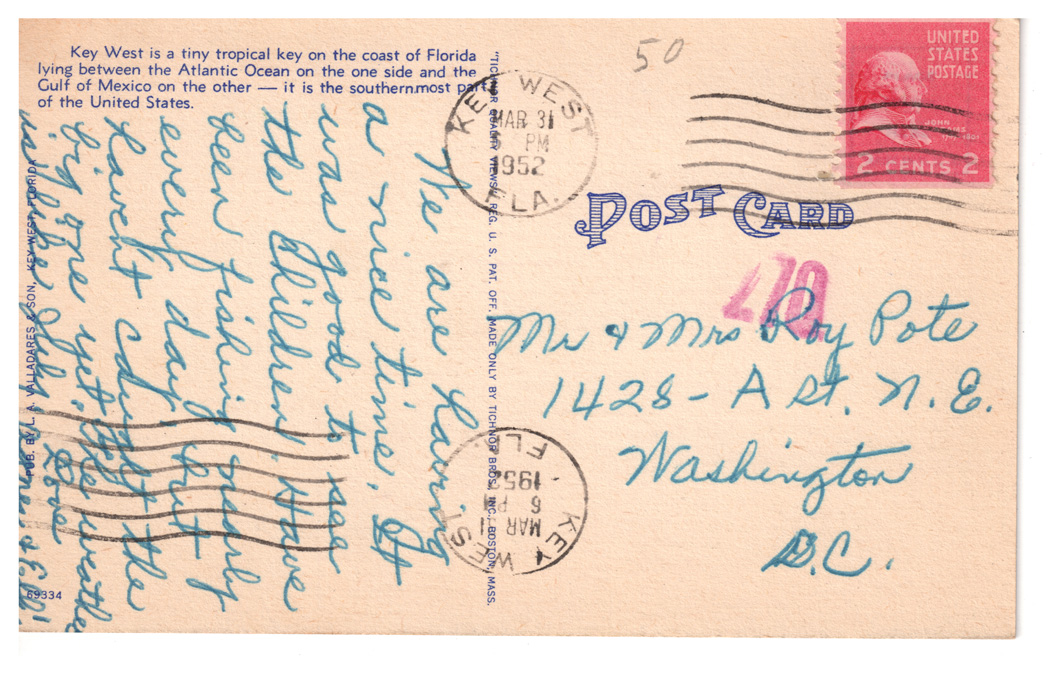 Key West is a tiny tropical key on the coast of Florida
lying between the Atlantic Ocean on the one side and the
Gulf of Mexico on the other — it is the southernmost part
of the United States.
50
UNITED
STATES
POSTAGE
JOHN
2 CENTS 2
KEY WEST
MAR 31
PM
1952
FLA.
POST CARD
270
We are having
a nice time. It
was good to see
the Children, Have
been fishing nearly
every day, but
haven't caught the
big one yet, the weather
is like July.
Love
Mr & Mrs Roy Pote
1428 - A St. N. E.
Washington
D.C.
"TICHNOR QUALITY VIEWS," REG. U. S. PAT. OFF. MADE ONLY BY TICHNOR BROS., INC., BOSTON, MASS.
PUB. BY L. A. VALLADARES & SON, KEY WEST, FLORIDA
KEY WEST
MAR 31
6 PM
1952
FLA.
69334